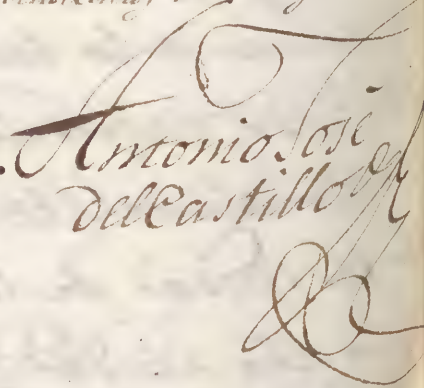 Antonio José
del Castillo